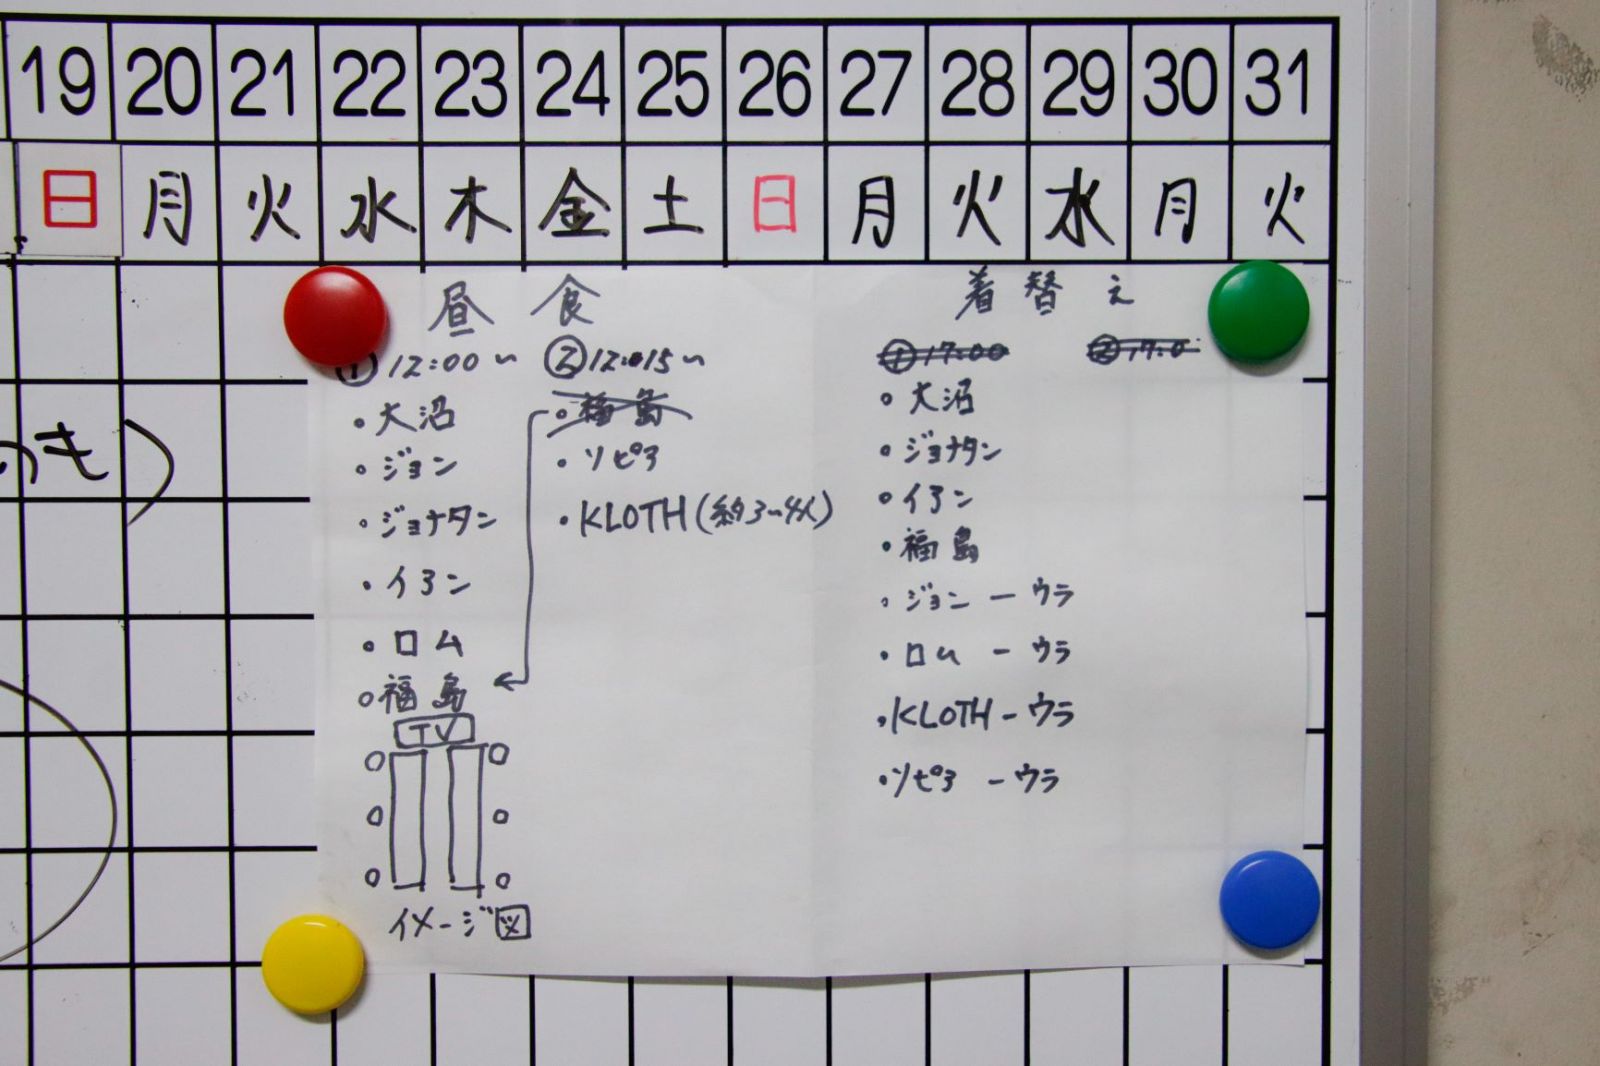 19 20 21 22 23 24 25 26 27 28 29 30 31
日 月 火 水 木 金 土 日 月 火 水 月 火
昼食
① 12:00〜
・大沼
・ジョン
・ジョナタン
・イアン
・ロム
・福島
TV
イメージ図
② 12:15〜
・福島
・ソピア
・KLOTH(約3〜4人)
着替え
① 17:00
・大沼
・ジョナタン
・イアン
・福島
・ジョン ー ウラ
・ロム ー ウラ
・KLOTH ー ウラ
・ソピア ー ウラ
のき)